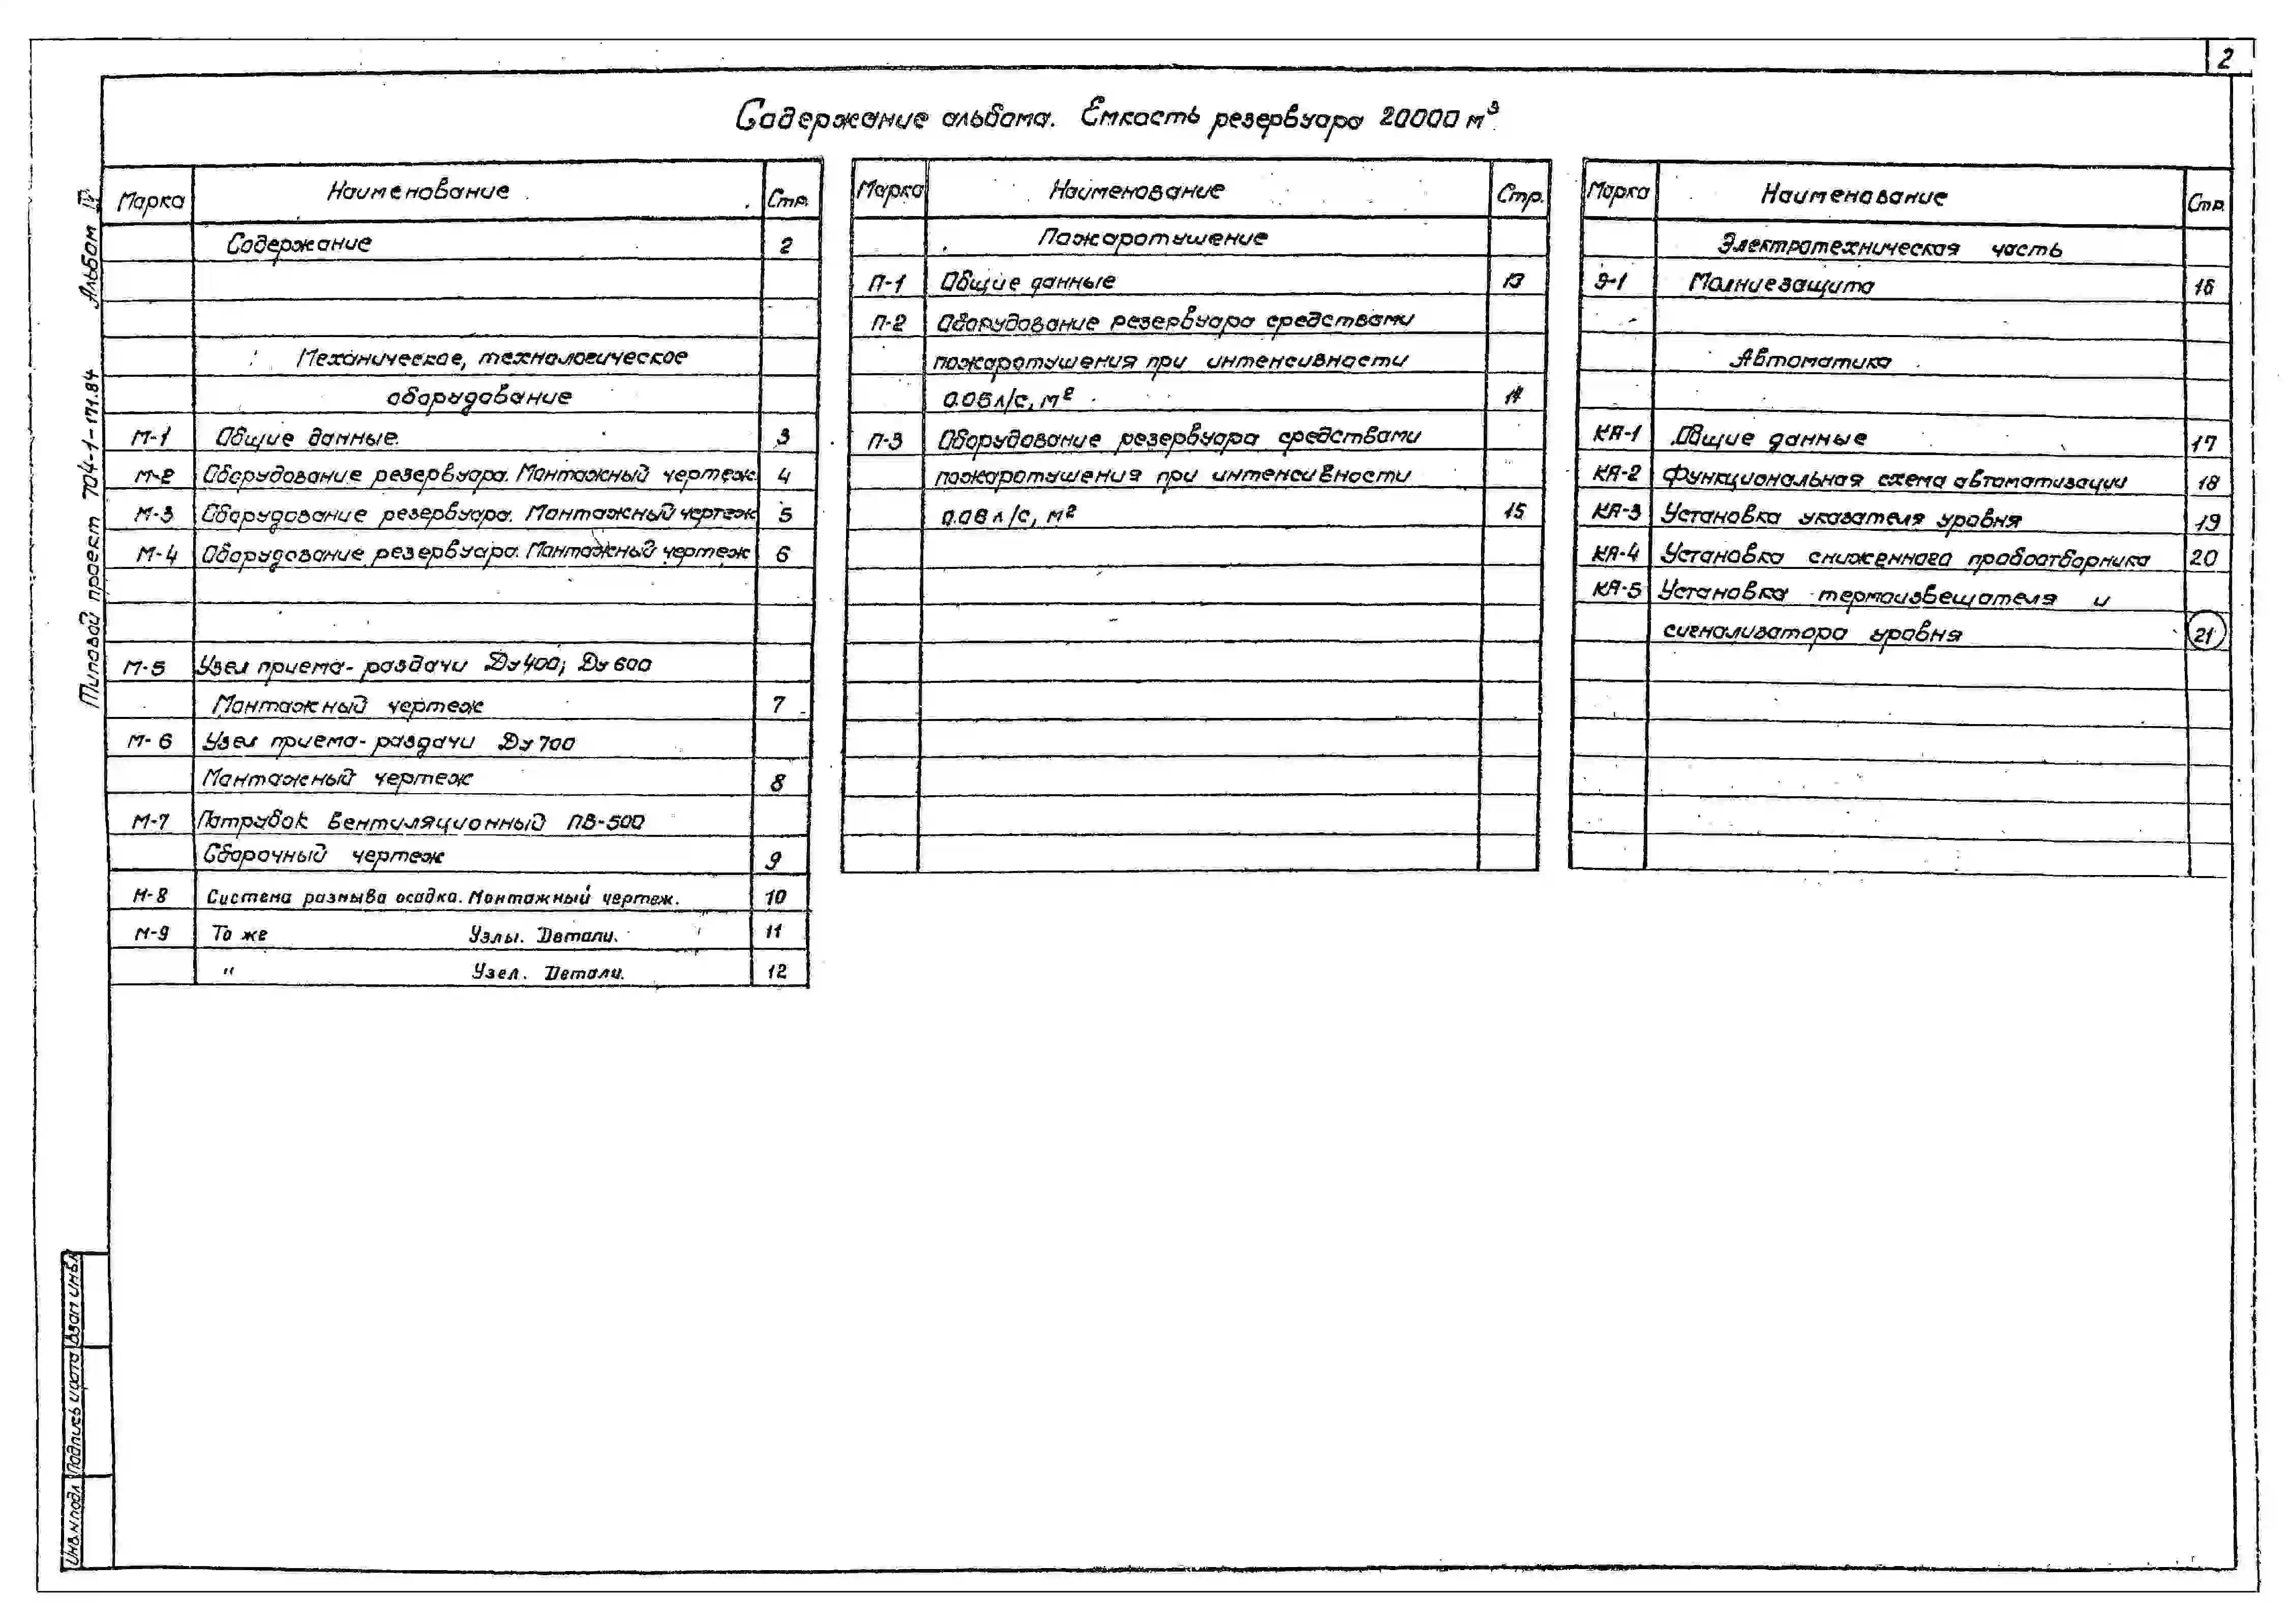 2
Содержание альбома. Емкость резервуара 20000 м³
Типовой проект 704-1-171.84 Альбом IV
Марка Наименование Стр.
Содержание 2
Механическое, технологическое
оборудование
М-1 Общие данные. 3
М-2 Оборудование резервуара. Монтажный чертеж 4
М-3 Оборудование резервуара. Монтажный чертеж 5
М-4 Оборудование резервуара. Монтажный чертеж 6
М-5 Узел приема-раздачи Ду 400; Ду 600
Монтажный чертеж 7
М-6 Узел приема-раздачи Ду 700
Монтажный чертеж 8
М-7 Патрубок вентиляционный ПВ-500
Сборочный чертеж 9
М-8 Система размыва осадка. Монтажный чертеж. 10
М-9 То же Узлы. Детали. 11
" Узел. Детали. 12
Марка Наименование Стр.
Пожаротушение
П-1 Общие данные 13
П-2 Оборудование резервуара средствами
пожаротушения при интенсивности
0.05 л/с, м² 14
П-3 Оборудование резервуара средствами
пожаротушения при интенсивности
0.08 л/с, м² 15
Марка Наименование Стр.
Электротехническая часть
Э-1 Молниезащита 16
Автоматика
КА-1 Общие данные 17
КА-2 Функциональная схема автоматизации 18
КА-3 Установка указателя уровня 19
КА-4 Установка сниженного пробоотборника 20
КА-5 Установка термоизвещателя и
сигнализатора уровня 21
Инв.№подл. Подпись и дата Взам инв.№